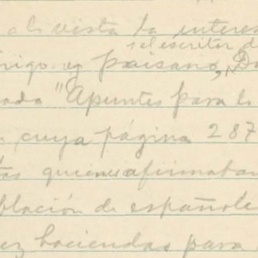 a la vista la interes
el escritor d
migo y paisano, D
ada "Apuntes para la
cuya página 287
quienes afirmaban
blación de españole
ez haciendas para